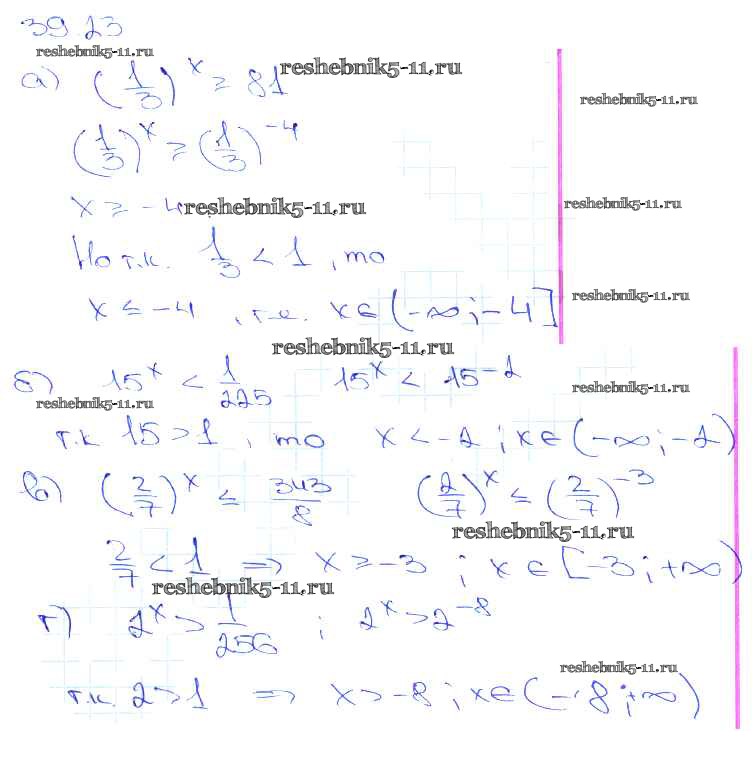 39.23
reshebnik5-11.ru
а) (1/3)^x ≥ 81 reshebnik5-11.ru
reshebnik5-11.ru
(1/3)^x ≥ (1/3)^-4
x ≥ -4 reshebnik5-11.ru
reshebnik5-11.ru
Но т.к. 1/3 < 1, то
x ≤ -4, т.е. x ∈ (-∞; -4]
reshebnik5-11.ru
reshebnik5-11.ru
б) 15^x < 1/225 15^x < 15^-2
reshebnik5-11.ru
reshebnik5-11.ru
т.к 15 > 1, то x < -2; x ∈ (-∞; -2)
в) (2/7)^x ≤ 343/8 (2/7)^x ≤ (2/7)^-3
reshebnik5-11.ru
2/7 < 1 ⇒ x ≥ -3; x ∈ [-3; +∞)
reshebnik5-11.ru
г) 2^x > 1/256; 2^x > 2^-8
reshebnik5-11.ru
т.к. 2 > 1 ⇒ x > -8; x ∈ (-8; +∞)